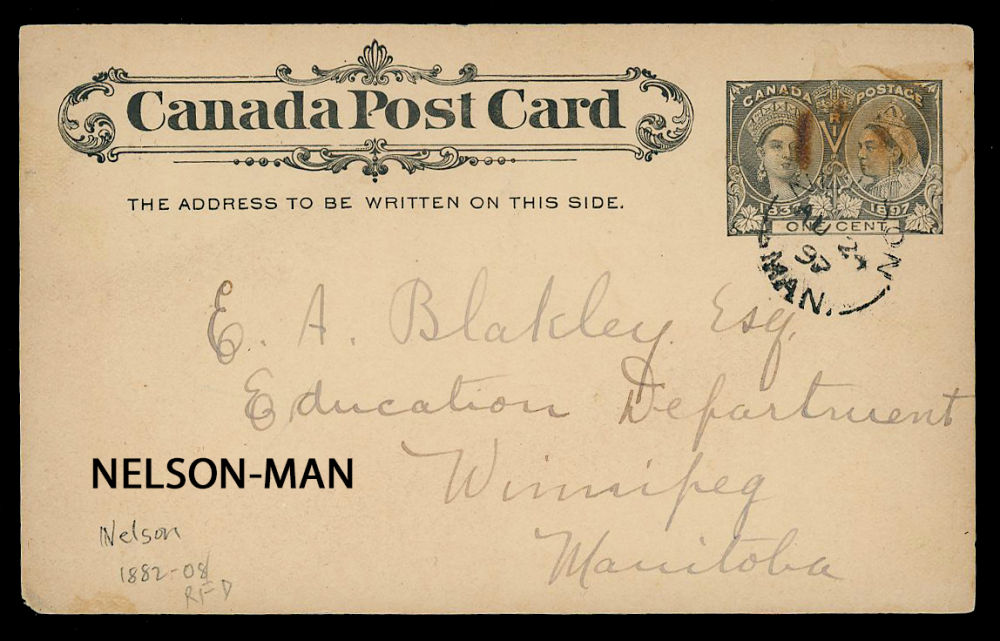 Canada Post Card
THE ADDRESS TO BE WRITTEN ON THIS SIDE.
CANADA POSTAGE
VRI
1897
ONE CENT
MAN.
E. A. Blakley Esq.
Education Department
Winnipeg
Manitoba
NELSON-MAN
Nelson
1882-08
RFD